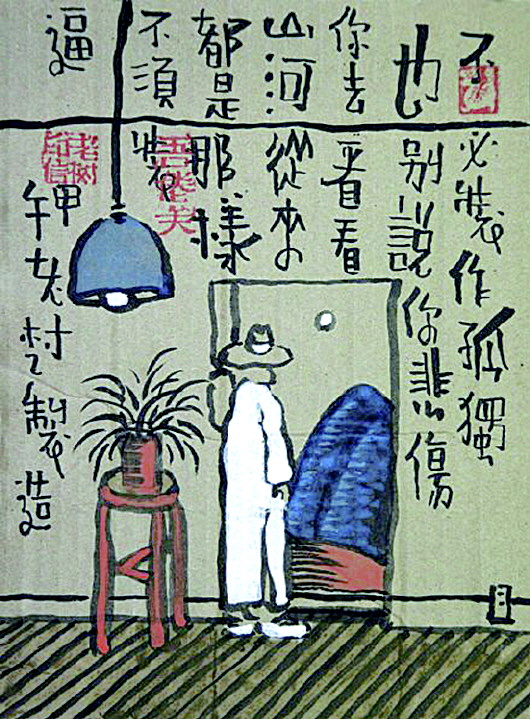 不必裝作孤獨
也别說你悲傷
你去看看
山河從來
都是那樣
不須裝
逼
甲午老树製造
老树印信